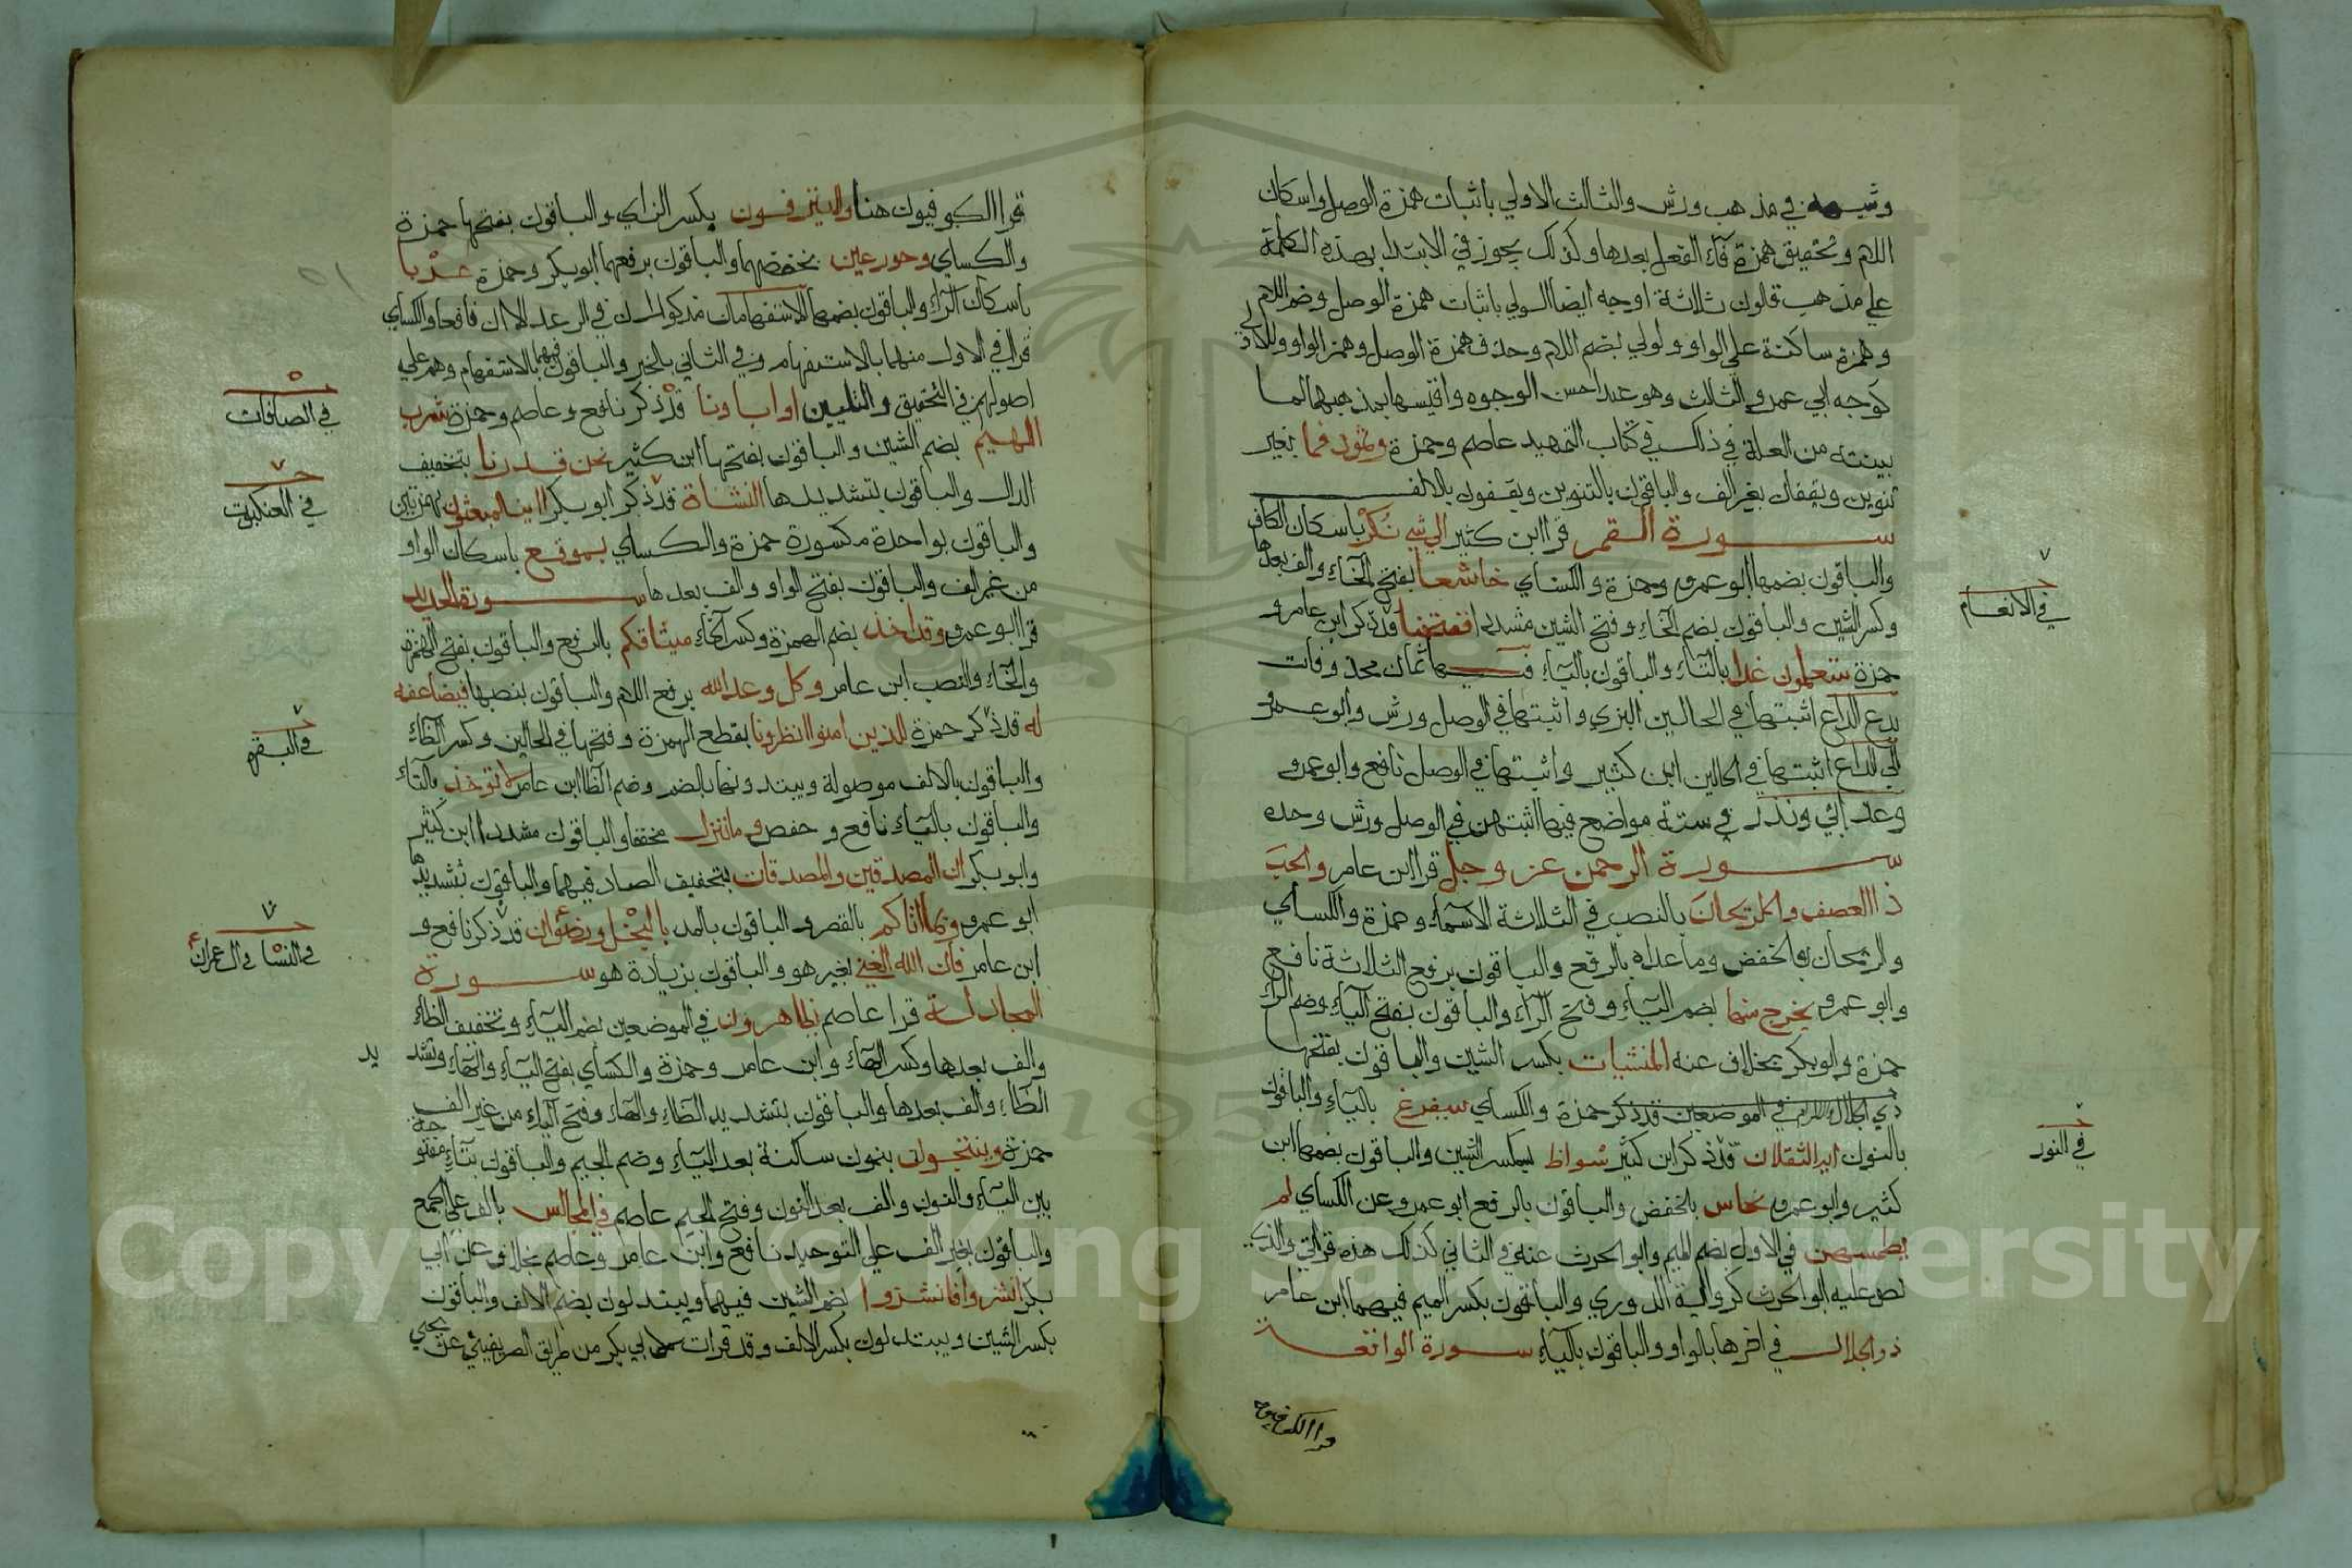 وشبهه في مذهب ورش والثالث الاولي باثبات همزة الوصل واسكان
اللام وتحقيق همزة فآء الفعل بعدها وكذلك يجوز في الابتدا بهذه الكلمة
علي مذهب قالون ثلاثة اوجه ايضا الولي باثبات همزة الوصل وضم اللام
وهمزة ساكنة علي الواو ولولي بضم اللام وحذف همزة الوصل وهمز الواو والاولي
كوجه ابي عمرو الثالث وهو عندا حسن الوجوه واقيسها بمذهبهما لما
بينته من العلة في ذلك في كتاب التمهيد عاصم وحمزة وثمود فما بغير
تنوين ويقفان بغير الف والباقون بالتنوين ويقفون بالالف
سورة القمر قرا ابن كثير الي شي نكر باسكان الكاف
والباقون بضمها ابو عمرو وحمزة والكساي خاشعا بفتح الخآء والف بعدها
وكسر الشين والباقون بضم الخآء وفتح الشين مشددا ففتحنا قد ذكر ابن عامر و
حمزة ستعلمون غدا بالتآء والباقون باليآء فيها ثمان محذوفات
يدع الداع اثبتها في الحالين البزي واثبتها في الوصل ورش وابو عمرو
الي الداع اثبتها في الحالين ابن كثير واثبتها في الوصل نافع وابو عمرو
وعذابي ونذر في ستة مواضع فيها اثبتهن في الوصل ورش وحده
سورة الرحمن عز وجل قرا ابن عامر والحب
ذا العصف والريحان بالنصب في الثلاثة الاسمآء وحمزة والكساي
والريحان بالخفض وما عداه بالرفع والباقون برفع الثلاثة نافع
وابو عمرو يخرج منهما بضم اليآء وفتح الرآء والباقون بفتح اليآء وضم الرآء
حمزة وابو بكر بخلاف عنه المنشيات بكسر الشين والباقون بفتحها
ذي الجلال في الموضعين قد ذكر حمزة والكساي سيفرغ باليآء والباقون
بالنون ايه الثقلان قد ذكر ابن كثير شواظ بكسر الشين والباقون بضمها ابن
كثير وابو عمرو نحاس بالخفض والباقون بالرفع ابو عمرو عن الكساي لم
يطمسهن في الاول بضم الميم وابو الحرث عنه في الثاني كذلك هذه قرائتي والذي
نص عليه ابو الحرث كرواية الدوري والباقون بكسر الميم فيهما ابن عامر
ذو الجلال في اخرها بالواو والباقون باليآء سورة الواقعة
قرا الكوفيون
في الانعام
في النور
قرا الكوفيون هنا ولا ينزفون بكسر الزاي والباقون بفتحها حمزة
والكساي وحور عين بخفضهما والباقون برفعهما ابو بكر وحمزة عربا
باسكان الرآء والباقون بضمها الاستفهامان مذكوران في الرعد الا ان نافعا والكساي
قرا في الاول منهما بالاستفهام وفي الثاني بالخبر والباقون فيهما بالاستفهام وهم علي
اصولهم في التحقيق والتليين اواباونا قد ذكر نافع وعاصم وحمزة شرب
الهيم بضم الشين والباقون بفتحها ابن كثير نحن قدرنا بتخفيف
الدال والباقون بتشديدها النشاة قد ذكر ابو بكر اانا لمغرمون بهمزتين
والباقون بواحدة مكسورة حمزة والكساي بموقع باسكان الواو
من غير الف والباقون بفتح الواو والف بعدها سورة الحديد
قرا ابو عمرو وقد اخذ بضم الهمزة وكسر الخآء ميثاقكم بالرفع والباقون بفتح الهمزة
والخآء والنصب ابن عامر وكل وعد الله برفع اللام والباقون بنصبها فيضاعفه
له قد ذكر حمزة للذين امنوا انظرونا بقطع الهمزة وفتحها في الحالين وكسر الظآء
والباقون بالالف موصولة ويبتدونها بالضم وضم الظا ابن عامر لا توخذ بالتآء
والباقون باليآء نافع وحفص وما نزل مخففا والباقون مشددا ابن كثير
وابو بكر ان المصدقين والمصدقات بتخفيف الصاد فيهما والباقون بتشديدها
ابو عمرو وبما اتاكم بالقصر والباقون بالمد بالبخل ورضوان قد ذكر نافع و
ابن عامر فان الله الغني بغير هو والباقون بزيادة هو سورة
المجادلة قرا عاصم يظاهرون في الموضعين بضم اليآء وتخفيف الظآء
والف بعدها وكسر الهآء وابن عامر وحمزة والكساي بفتح اليآء والهآء وتشديد
الظآء والف بعدها والباقون بتشديد الظآء والهآء وفتح اليآء من غير الف
حمزة وينتجون بنون ساكنة بعد اليآء وضم الجيم والباقون بتآء مفتوحة
بين اليآء والنون والف بعد النون وفتح الجيم عاصم في المجالس بالف علي الجمع
والباقون بغير الف علي التوحيد نافع وابن عامر وعاصم بخلاف عن ابي
بكر انشزوا فانشزوا بضم الشين فيهما ويبتدلون بضم الالف والباقون
بكسر الشين ويبتدلون بكسر الالف وقد قرات لابي بكر من طريق الصريفيني عن يحيي
في الصافات
في العنكبوت
في البقرة
في النسا وال عمران
Copyright © King Saud University
1957